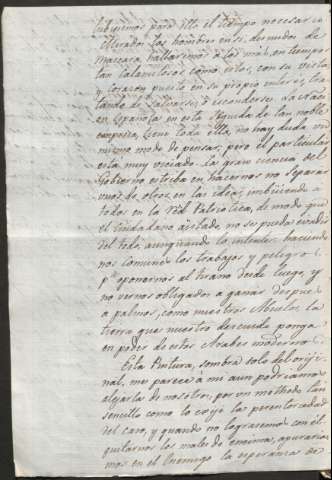 tubiesemos para ello el tiempo necesario
Mirados los hombres entes desnudos de
mascara, hallaremos a los mas, en tiempos
tan calamitosos como estos, con su vista
y corazon puesto en su propio interes, tra
tando de salvarse, ò esconderse. La Nacion
en Española en esta segunda de tan noble
empresa, tiene toda ella, no hay duda un
mismo modo de pensar; pero el particular
está muy viciado. La gran ciencia del
Gobierno estriba en hacernos no separar
unos de otros en las ideas; embuiendo a
todos en la red Patriotica, de modo que
el Ciudadano aislado, no se pueda evadir
del todo, aunque ande lo intente: haciendo
nos comunes los trabajos y peligros
pª oponernos al tirano desde luego, y
no vernos obligados a ganar despues
a palmos, como nuestros Abuelos, la
tierra que nuestro descuido ponga
en poder de estos Arabes modernos.
Esta Pintura, sombra solo del origi
nal, me parece a mi aun podriamos
alejarla de nosotros, por un methodo tan
sencillo como lo exije la perentoriedad
del caso, y quando no lograsemos con el
quitarnos los males de encima, apuraria
mos en el Enemigo la esperanza de